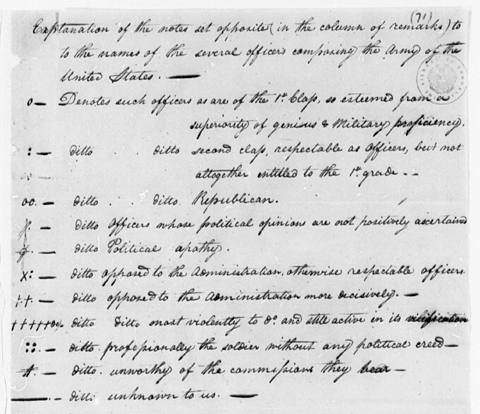 (71)
Explanation of the notes set opposite (in the column of remarks) to
to the names of the several officers composing the Army of the
United States. —
o — Denotes such officers as are of the 1st Class, so esteemed from a
superiority of genius & Military proficiency.
: — ditto . ditto second class, respectable as Officers, but not
altogether entitled to the 1st grade - -
oo. — ditto . . ditto. Republican.
— ditto Officers whose political opinions are not positively ascertained
— ditto Political apathy.
x: — ditto opposed to the Administration, otherwise respectable officers
++. — ditto opposed to the Administration more decisively. —
ditto ditto most violently to do. and still active in its vilification
::. — ditto. professionally the soldier without any political creed —
— ditto. unworthy of the commissions they bear —
— . — ditto unknown to us. —